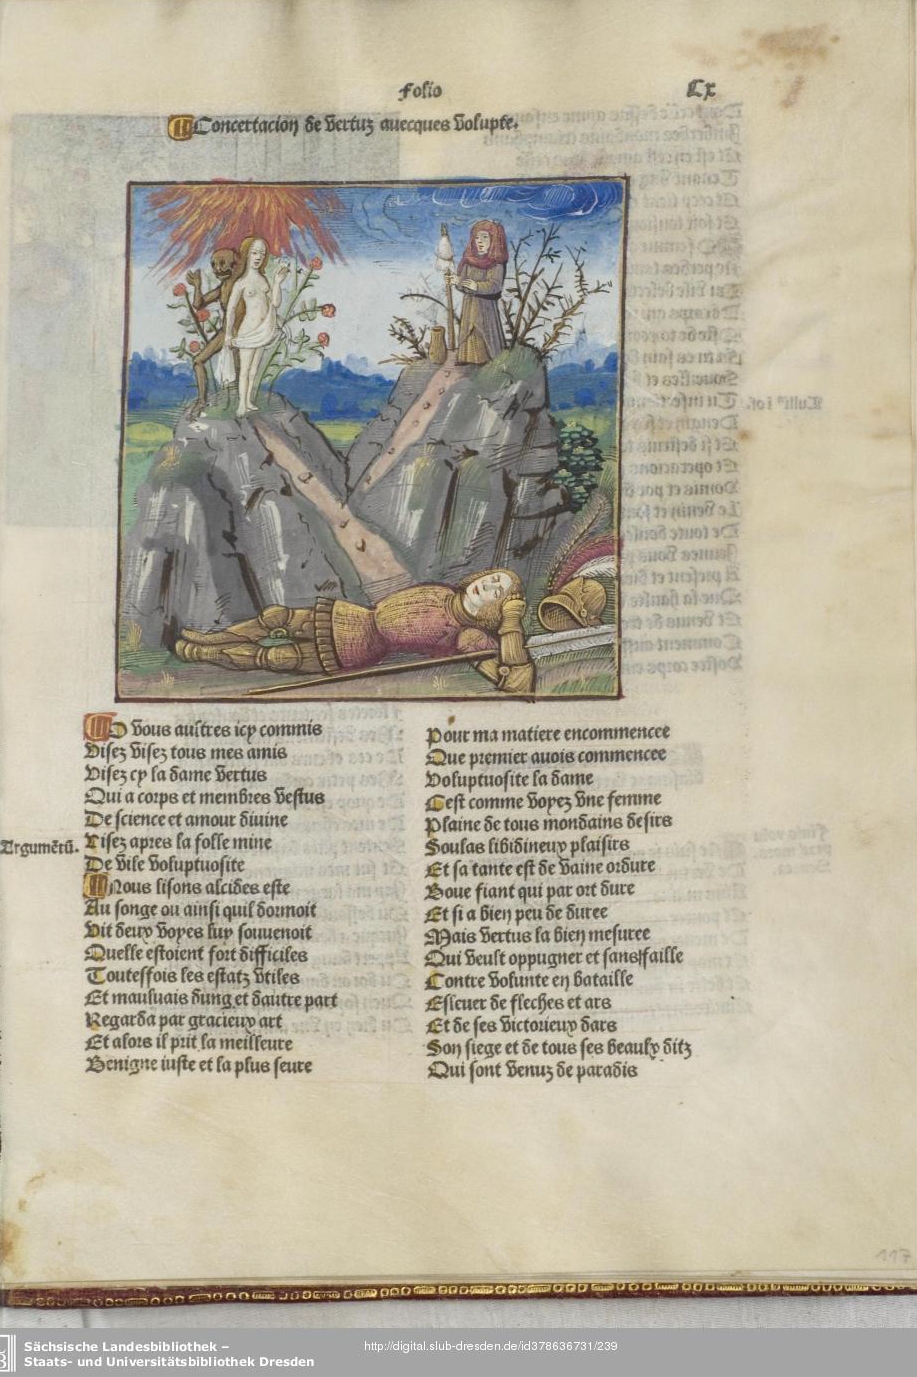 Folio
Cx
Concertacion de vertuz auecques volupte.
O vous aultres icy commis
Visez visez tous mes amis
Visez cy la dame vertus
Qui a corps et membres vestus
De science et amour diuine
Argumētū.
Visez apres la folle mine
De vile voluptuosite
Nous lisons alcides este
Au songe ou ainsi quil dormoit
Vit deux voyes luy souuenoit
Quelle estoient fort difficiles
Touteffois les estatz vtiles
Et mauluais dung et dautre part
Regarda par gracieux art
Et alors il prit la meilleure
Benigne iuste et la plus seure
Pour ma matiere encommencee
Que premier auois commencee
Voluptuosite la dame
Cest comme voyez vne femme
Plaine de tous mondains desirs
Soulas libidineux plaisirs
Et sa tante est de vaine ordure
Boue fiant qui par ort dure
Et si a bien peu de duree
Mais vertus la bien mesuree
Qui veult oppugner et sans faille
Contre volunte en bataille
Esleuer de fleches et ars
Et de ses victorieux dars
Son siege et de tous ses beaulx ditz
Qui sont venuz de paradis
117
Sächsische Landesbibliothek –
Staats- und Universitätsbibliothek Dresden
http://digital.slub-dresden.de/id378636731/239